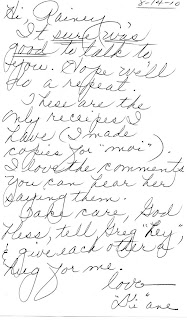 8-14-10
Hi, Rainey
It sure was
good to talk to
you. Hope we'll
do a repeat.
These are the
only recipes I
have (I made
copies for "moi").
I love the comments
you can hear her
saying them.
Take care, God
Bless, tell Greg "Hey",
& give each other a
hug for me.
love
"Di" ane